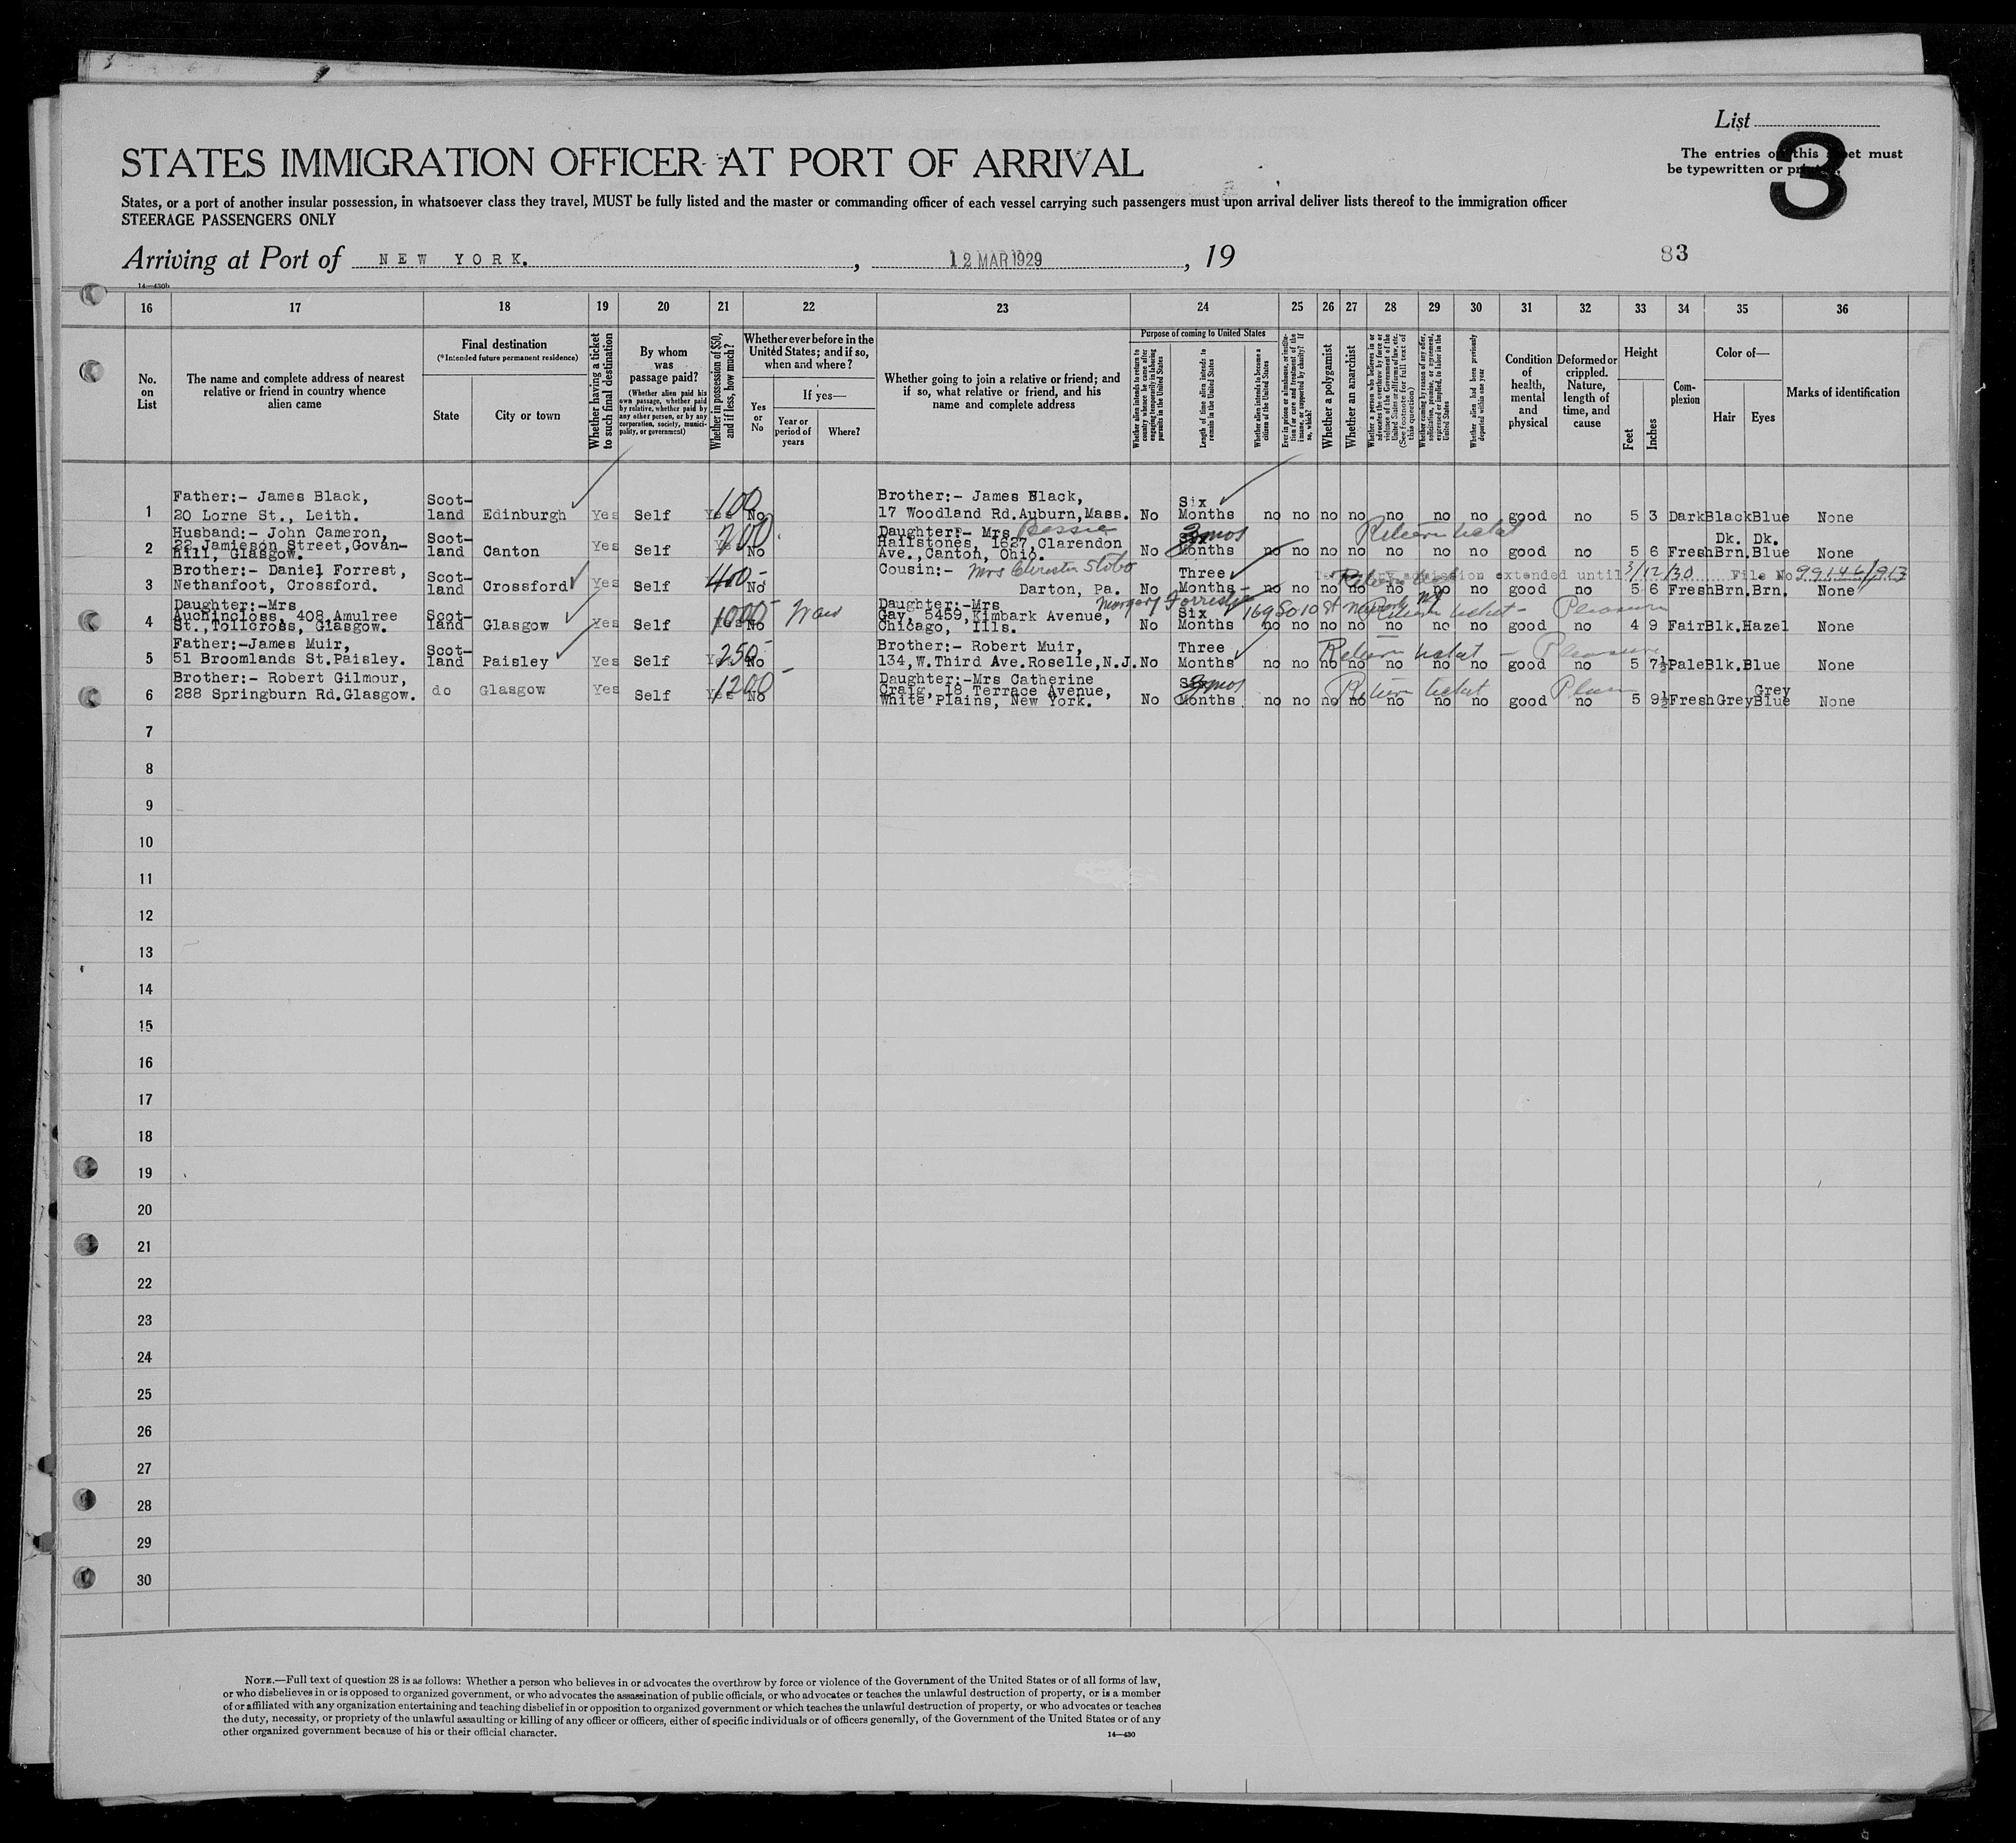 List
3
STATES IMMIGRATION OFFICER AT PORT OF ARRIVAL
The entries on this sheet must
be typewritten or printed.
States, or a port of another insular possession, in whatsoever class they travel, MUST be fully listed and the master or commanding officer of each vessel carrying such passengers must upon arrival deliver lists thereof to the immigration officer
STEERAGE PASSENGERS ONLY
Arriving at Port of NEW YORK. , 12 MAR 1929 , 19
83
14—430b
16 17 18 19 20 21 22 23 24 25 26 27 28 29 30 31 32 33 34 35 36
No. on List
The name and complete address of nearest relative or friend in country whence alien came
Final destination
(*Intended future permanent residence)
State
City or town
Whether having a ticket to such final destination
By whom was passage paid?
(Whether alien paid his own passage, whether paid by relative, whether paid by any other person, or by any corporation, society, municipality, or government)
Whether in possession of $50, and if less, how much?
Whether ever before in the United States; and if so, when and where?
Yes or No
If yes—
Year or period of years
Where?
Whether going to join a relative or friend; and if so, what relative or friend, and his name and complete address
Purpose of coming to United States
Whether alien intends to return to country whence he came after engaging temporarily in laboring pursuits in the United States
Length of time alien intends to remain in the United States
Whether alien intends to become a citizen of the United States
Ever in prison or almshouse, or institution for care and treatment of the insane, or supported by charity? If so, which?
Whether a polygamist
Whether an anarchist
Whether a person who believes in or advocates the overthrow by force or violence of the Government of the United States or all forms of law, etc. (See footnote for full text of this question)
Whether coming by reason of any offer, solicitation, promise, or agreement, expressed or implied, to labor in the United States
Whether alien had been previously deported within one year
Condition of health, mental and physical
Deformed or crippled. Nature, length of time, and cause
Height
Feet
Inches
Com-plexion
Color of—
Hair
Eyes
Marks of identification
1 Father:- James Black, 20 Lorne St., Leith. Scot-land Edinburgh Yes Self Yes 100 No Brother:- James Black, 17 Woodland Rd.Auburn,Mass. No Six Months no no no no no no no good no 5 3 Dark Black Blue None
2 Husband:- John Cameron, 22 Jamieson Street,Govan-hill, Glasgow. Scot-land Canton Yes Self 200 No Daughter:- Mrs Bessie Hailstones, 1627 Clarendon Ave.,Canton, Ohio. No 3 mos Months no no no no no no no Return ticket good no 5 6 Fresh Dk. Brn. Dk. Blue None
3 Brother:- Daniel Forrest, Nethanfoot, Crossford. Scot-land Crossford Yes Self 400 No Cousin:- Mrs Stobo Darton, Pa. No Three Months no no no no no no no good no 5 6 Fresh Brn. Brn. None
admission extended until 3/12/30 File No 99146/913
Forrest 169 So 10 St Newark NJ
4 Daughter:-Mrs Auchincloss, 408 Amulree St.,Tollcross, Glasgow. Scot-land Glasgow Yes Self Yes 1000 No Daughter:-Mrs Gay, 5459 Kimbark Avenue, Chicago, Ills. No Six Months no no no no no no no Return ticket - Pleasure good no 4 9 Fair Blk. Hazel None
5 Father:-James Muir, 51 Broomlands St.Paisley. Scot-land Paisley Yes Self Yes 250 No Brother:- Robert Muir, 134,W.Third Ave.Roselle,N.J. No Three Months no no no no no no no Return ticket - Pleasure good no 5 7½ Pale Blk. Blue None
6 Brother:- Robert Gilmour, 288 Springburn Rd.Glasgow. do Glasgow Yes Self Yes 1200 No Daughter:-Mrs Catherine Craig, 18 Terrace Avenue, White Plains, New York. No 3 mos Months no no no no no no no Return ticket good no 5 9½ Fresh Grey Grey Blue None
7
8
9
10
11
12
13
14
15
16
17
18
19
20
21
22
23
24
25
26
27
28
29
30
NOTE.—Full text of question 28 is as follows: Whether a person who believes in or advocates the overthrow by force or violence of the Government of the United States or of all forms of law,
or who disbelieves in or is opposed to organized government, or who advocates the assassination of public officials, or who advocates or teaches the unlawful destruction of property, or is a member
of or affiliated with any organization entertaining and teaching disbelief in or opposition to organized government or which teaches the unlawful destruction of property, or who advocates or teaches
the duty, necessity, or propriety of the unlawful assaulting or killing of any officer or officers, either of specific individuals or of officers generally, of the Government of the United States or of any
other organized government because of his or their official character.
14—430